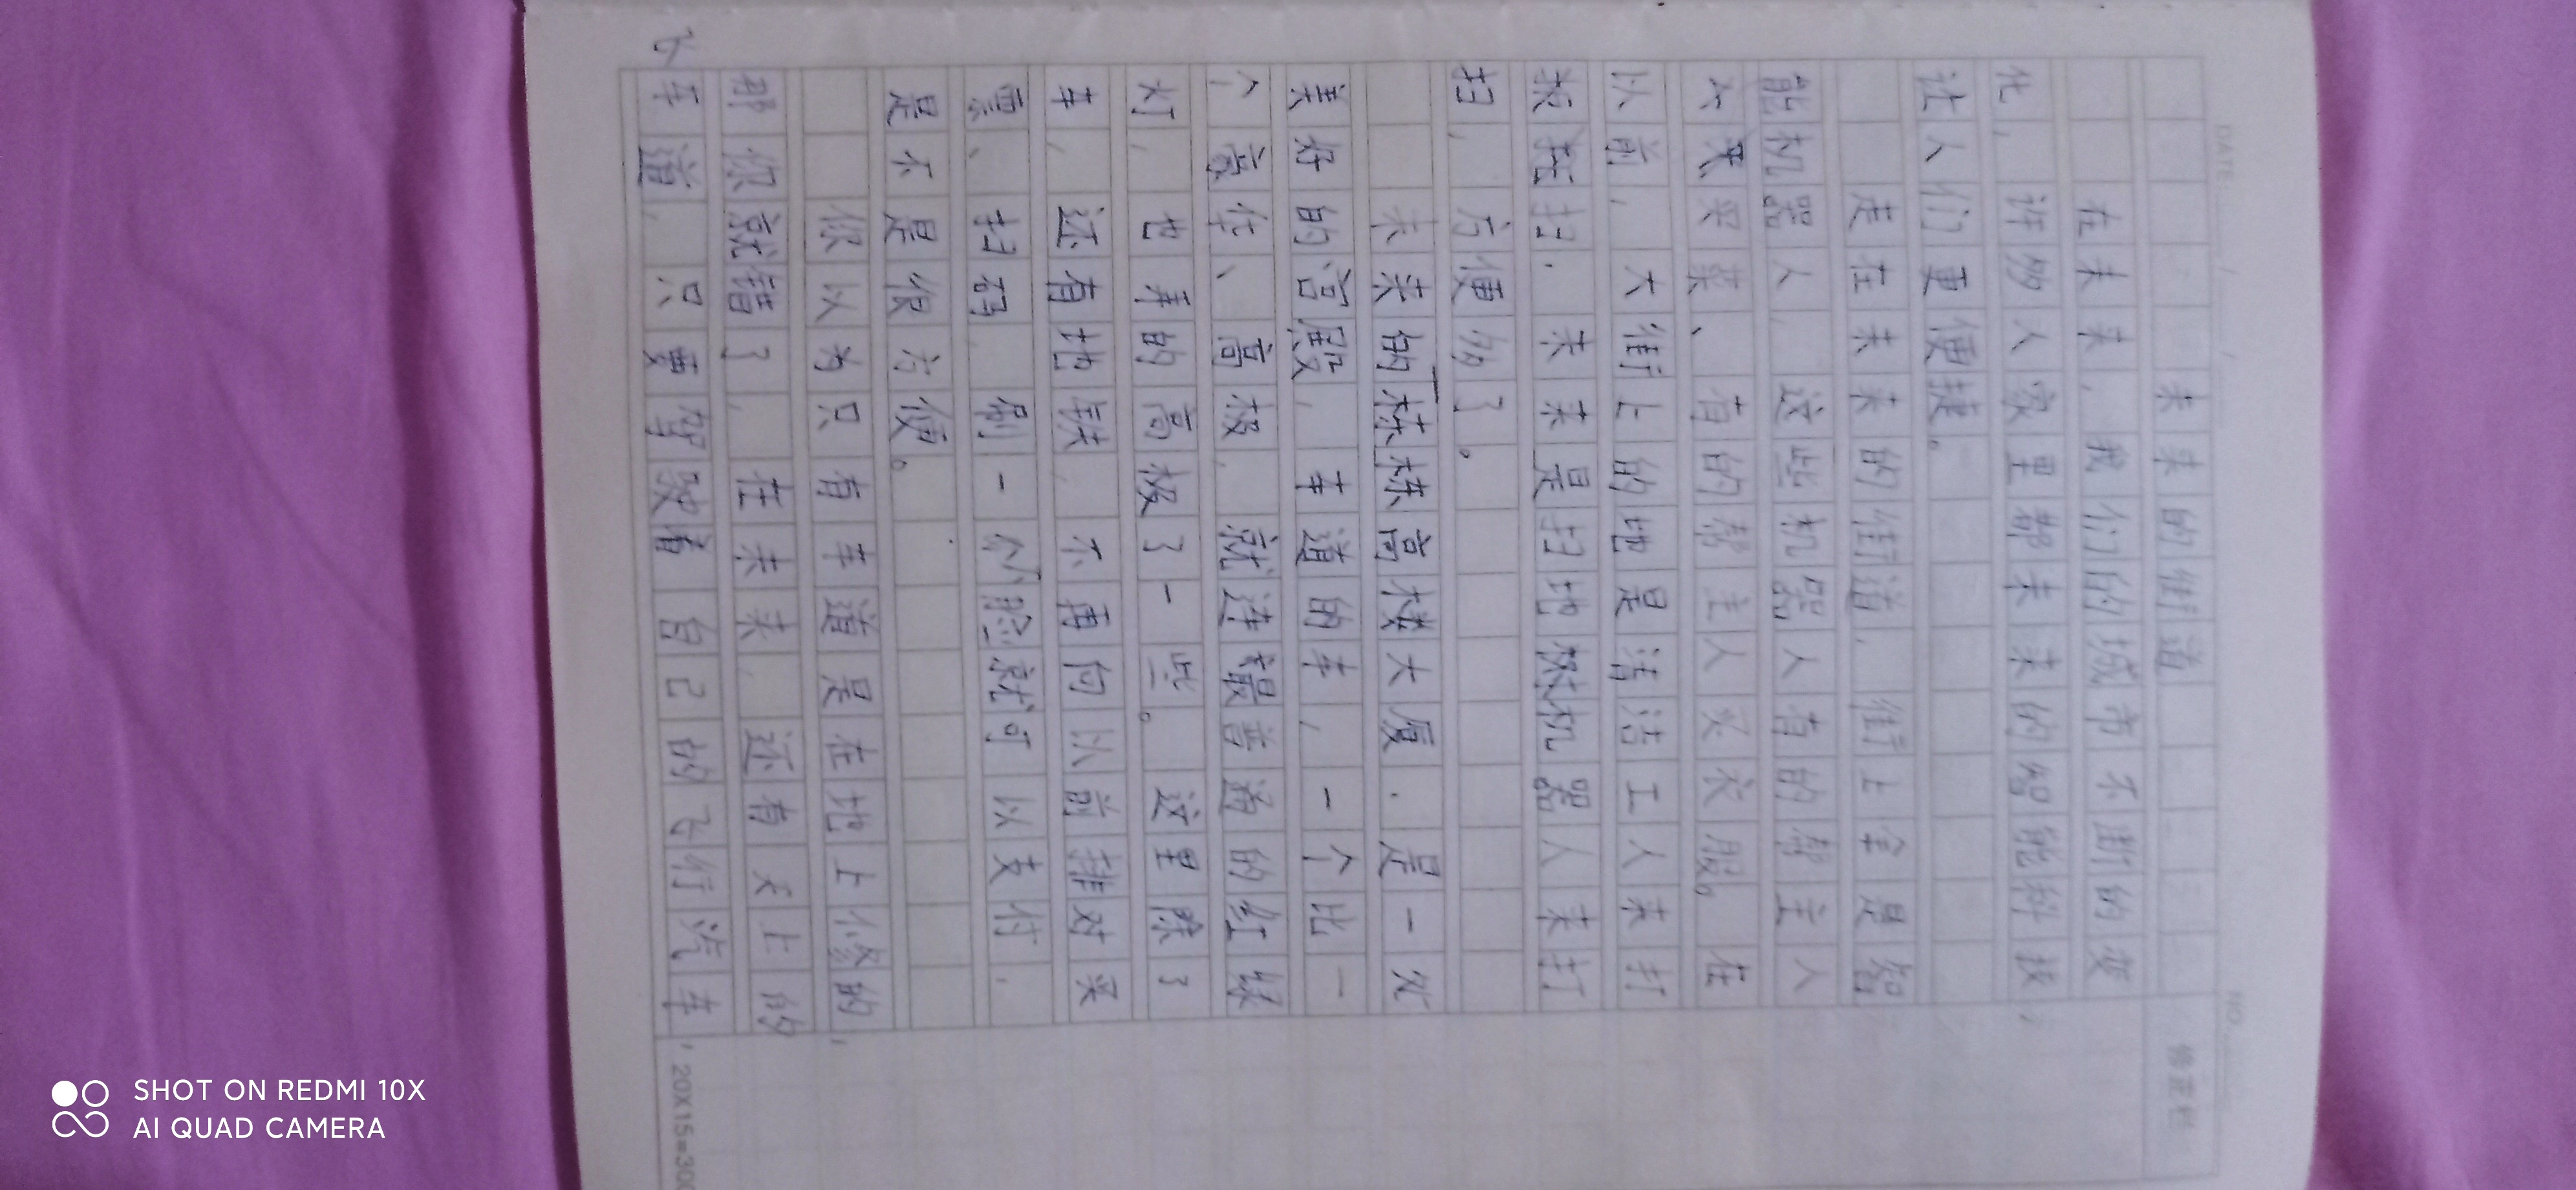 DATE
NO.
修正栏
未来的街道
在未来，我们的城市不断的变
化，许多人家里都未来的智能科技，
让人们更便捷。
走在未来的街道，街上全是智
能机器人，这些机器人有的帮主人
买菜、有的帮主人买衣服。在
以前，大街上的地是清洁工人来打
扫，未来是扫地机器人来打
扫，方便多了。
未来的栋栋高楼大厦，是一处
美好的宫殿，车道的车，一个比一
个豪华、高极，就连最普通的红绿
灯，也弄的高极了一些。这里除了
车，还有地铁，不再向以前排对买
票、扫码，刷一个脸就可以支付，
是不是很方便。
你以为只有车道是在地上修的，
那你就错了，在未来，还有天上的
车道，只要驾驶着自己的飞行汽车，
飞
20X15=300
SHOT ON REDMI 10X
AI QUAD CAMERA